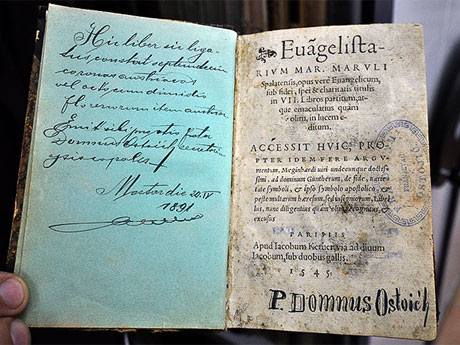 Hic liber sic liga-
tus, constat septemdecim
coronas austriacas
vel octo cum dimidio
florenorum item austriac.
Emit sibi
Domnus Ostoich
20. IV
1891
Euãgelista-
RIVM MAR. MARVLI
Spalatensis, opus verè Euangelicum,
sub fidei, spei & charitatis titulis
in VII. Libros partitum, at-
que emaculatius quàm
olim, in lucem e-
ditum.
ACCESSIT HVIC, PRO-
PTER IDEM FERE ARGV-
mentum, Meginhardi viri undecunque doctis-
simi, ad dominum Guntherum, de fide, varie-
tate symboli, & ipso symbolo apostolico, &
peste multarum hæreseon, Libel-
lus, nunc diligentius quàm olim
excusus
PARISIIS
Apud Iacobum Keruer, via ad diuum
Iacobum, sub duobus gallis.
1545
P. DOMNUS Ostoich